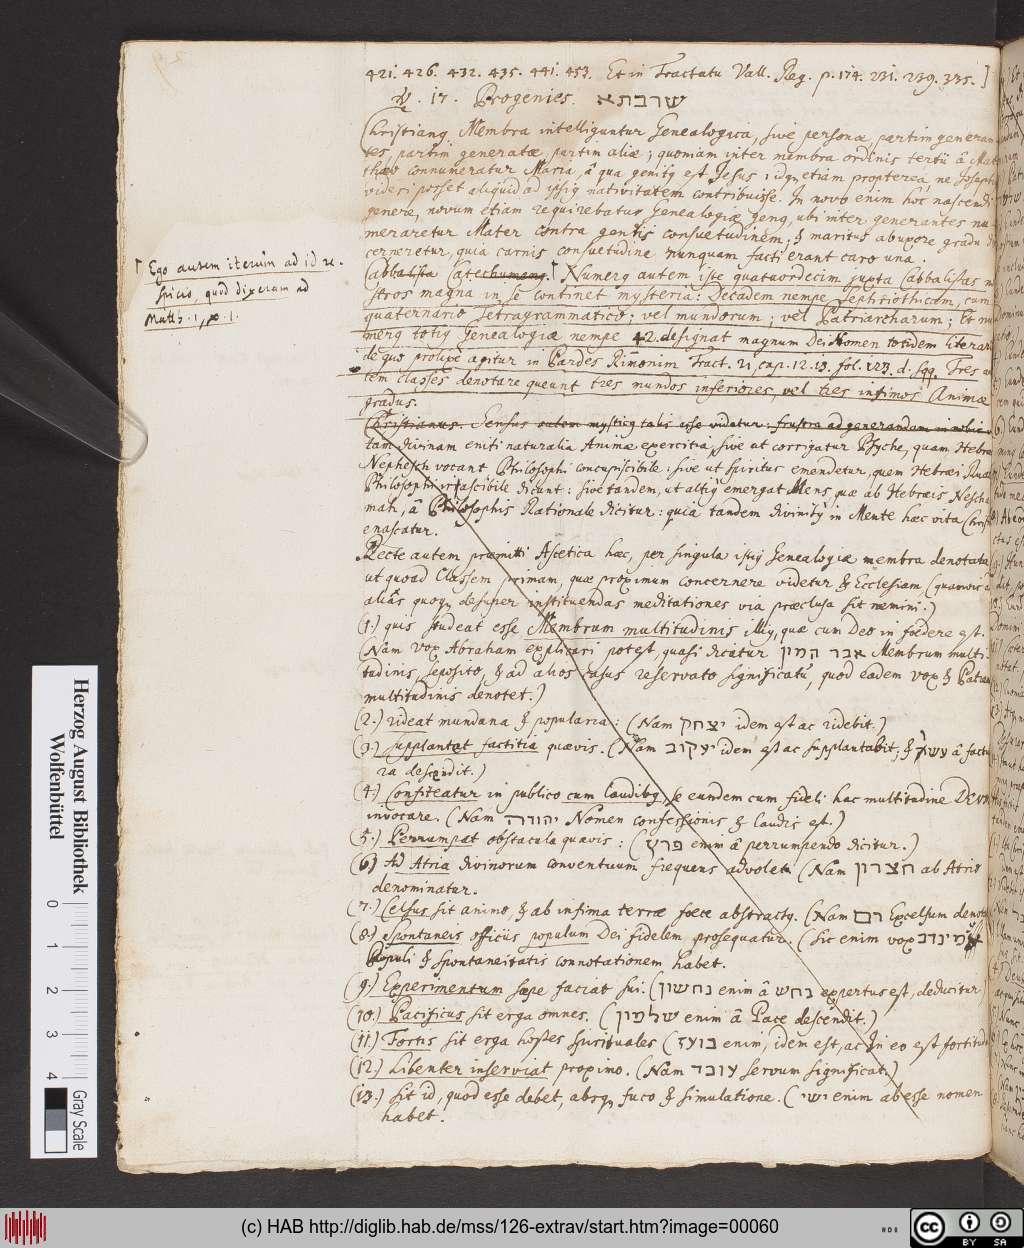 421. 426. 432. 435. 441. 453. Et in Tractatu Vall. Reg. p. 174. 231. 239. 335. ]
℣. 17. Progenies. שרבתא
Christianus Membra intelliguntur Genealogica, sive personæ, partim generan
tes, partim generatæ, partim aliæ; quoniam inter membra ordinis tertii â Mat
thæo connumeratur Maria, â qua genitus est Jesus: idque etiam propterea, ne Josephus
videri posset aliquid ad ipsius nativitatem contribuisse. In novo enim hoc nascendi
genere, novum etiam requirebatur Genealogiæ genus, ubi inter generantes nu
meraretur Mater contra gentis consuetudinem; & maritus ab uxore gradu
cerneretur, quia carnis consuetudine nunquam facti erant caro una.
Cabbalista Catechumenus. Numerus autem iste quatuordecim juxta Cabbalistas no
stros magna in se continet mysteria: Decadem nempe Sephirothicam, cum
quaternario Tetragrammatico; vel mundorum; vel Patriarcharum; Et nu
merus totius Genealogiæ nempe 42. designat magnum Dei Nomen totidem literarum
de quo prolixe agitur in Pardes Rimonim Tract. 21, cap. 12. 13. fol. 123. d. sqq. Tres au
tem classes denotare queunt tres mundos inferiores, vel tres infimos Animæ
gradus.
Ego autem iterum ad id re-
spicio, quod dixeram ad
Matth. 1, ℣. 1.
Christianus. Sensus autem mysticus talis esse videatur: frustra ad generandum in nobis vi
tam divinam eniti naturalia Animæ exercitia, sive ut corrigatur Psyche, quam Hebræi
Nephesch vocant Philosophi concupiscibile: sive ut spiritus emendetur, quem Hebræi Ruach
Philosophi irascibile dicunt: sive tandem, ut altius emergat Mens, quæ ab Hebræis Nescha
mah, â Philosophis Rationale dicitur: quia tandem divinitus in Mente hæc vita Christi
enascatur.
Recte autem præmitti Ascetica hæc, per singula istius Genealogiæ membra denotata
ut quoad Classem primam, quæ proximum concernere videtur & Ecclesiam (quamvis
alias quoque desuper instituendas meditationes via præclusa sit nemini.)
(1.) quis studeat esse Membrum multitudinis illius, quæ cum Deo in foedere est.
(Nam vox Abraham explicari potest, quasi dicatur אבר המון Membrum multi-
tudinis, seposito, & ad alios casus reservato significatu, quod eadem vox & Patrem
multitudinis denotet.)
(2.) rideat mundana & popularia: (Nam יצחק idem est ac ridebit.)
(3.) supplantet factitia quævis. (Nam יעקוב idem est ac supplantabit; & עשו â factu
ra descendit.)
(4.) Confiteatur in publico cum laudibus, se eundem cum fideli hac multitudine DEUM
invocare. (Nam יהודה Nomen confessionis & laudis est.)
(5.) Perrumpat obstacula quævis: (פרש enim â perrumpendo dicitur.)
(6) Ad Atria divinorum conventuum frequens advolet (Nam חצרון ab Atrio
denominatur.
(7.) Celsus sit animo, & ab infima terræ foece abstractus. (Nam רם Excelsum denotat
(8.) spontaneis officiis populum Dei fidelem prosequatur. (Sic enim vox עמינדב
Populi & spontaneitatis connotationem habet.
(9.) Experimentum sæpe faciat sui: (נחשון enim â נחש expertus est, deducitur
(10.) Pacificus sit erga omnes. (שלמון enim â Pace descendit.)
(11.) Fortis sit erga hostes spirituales (בועז enim, idem est, ac In eo est fortitudo
(12.) Libenter inserviat proximo. (Nam עובד servum significat.)
(13.) Sit id, quod esse debet, absque fuco & simulatione. (ישי enim ab esse nomen
habet.
Herzog August Bibliothek
Wolfenbüttel
0 1 2 3 4
Gray Scale
(c) HAB http://diglib.hab.de/mss/126-extrav/start.htm?image=00060
cc BY SA